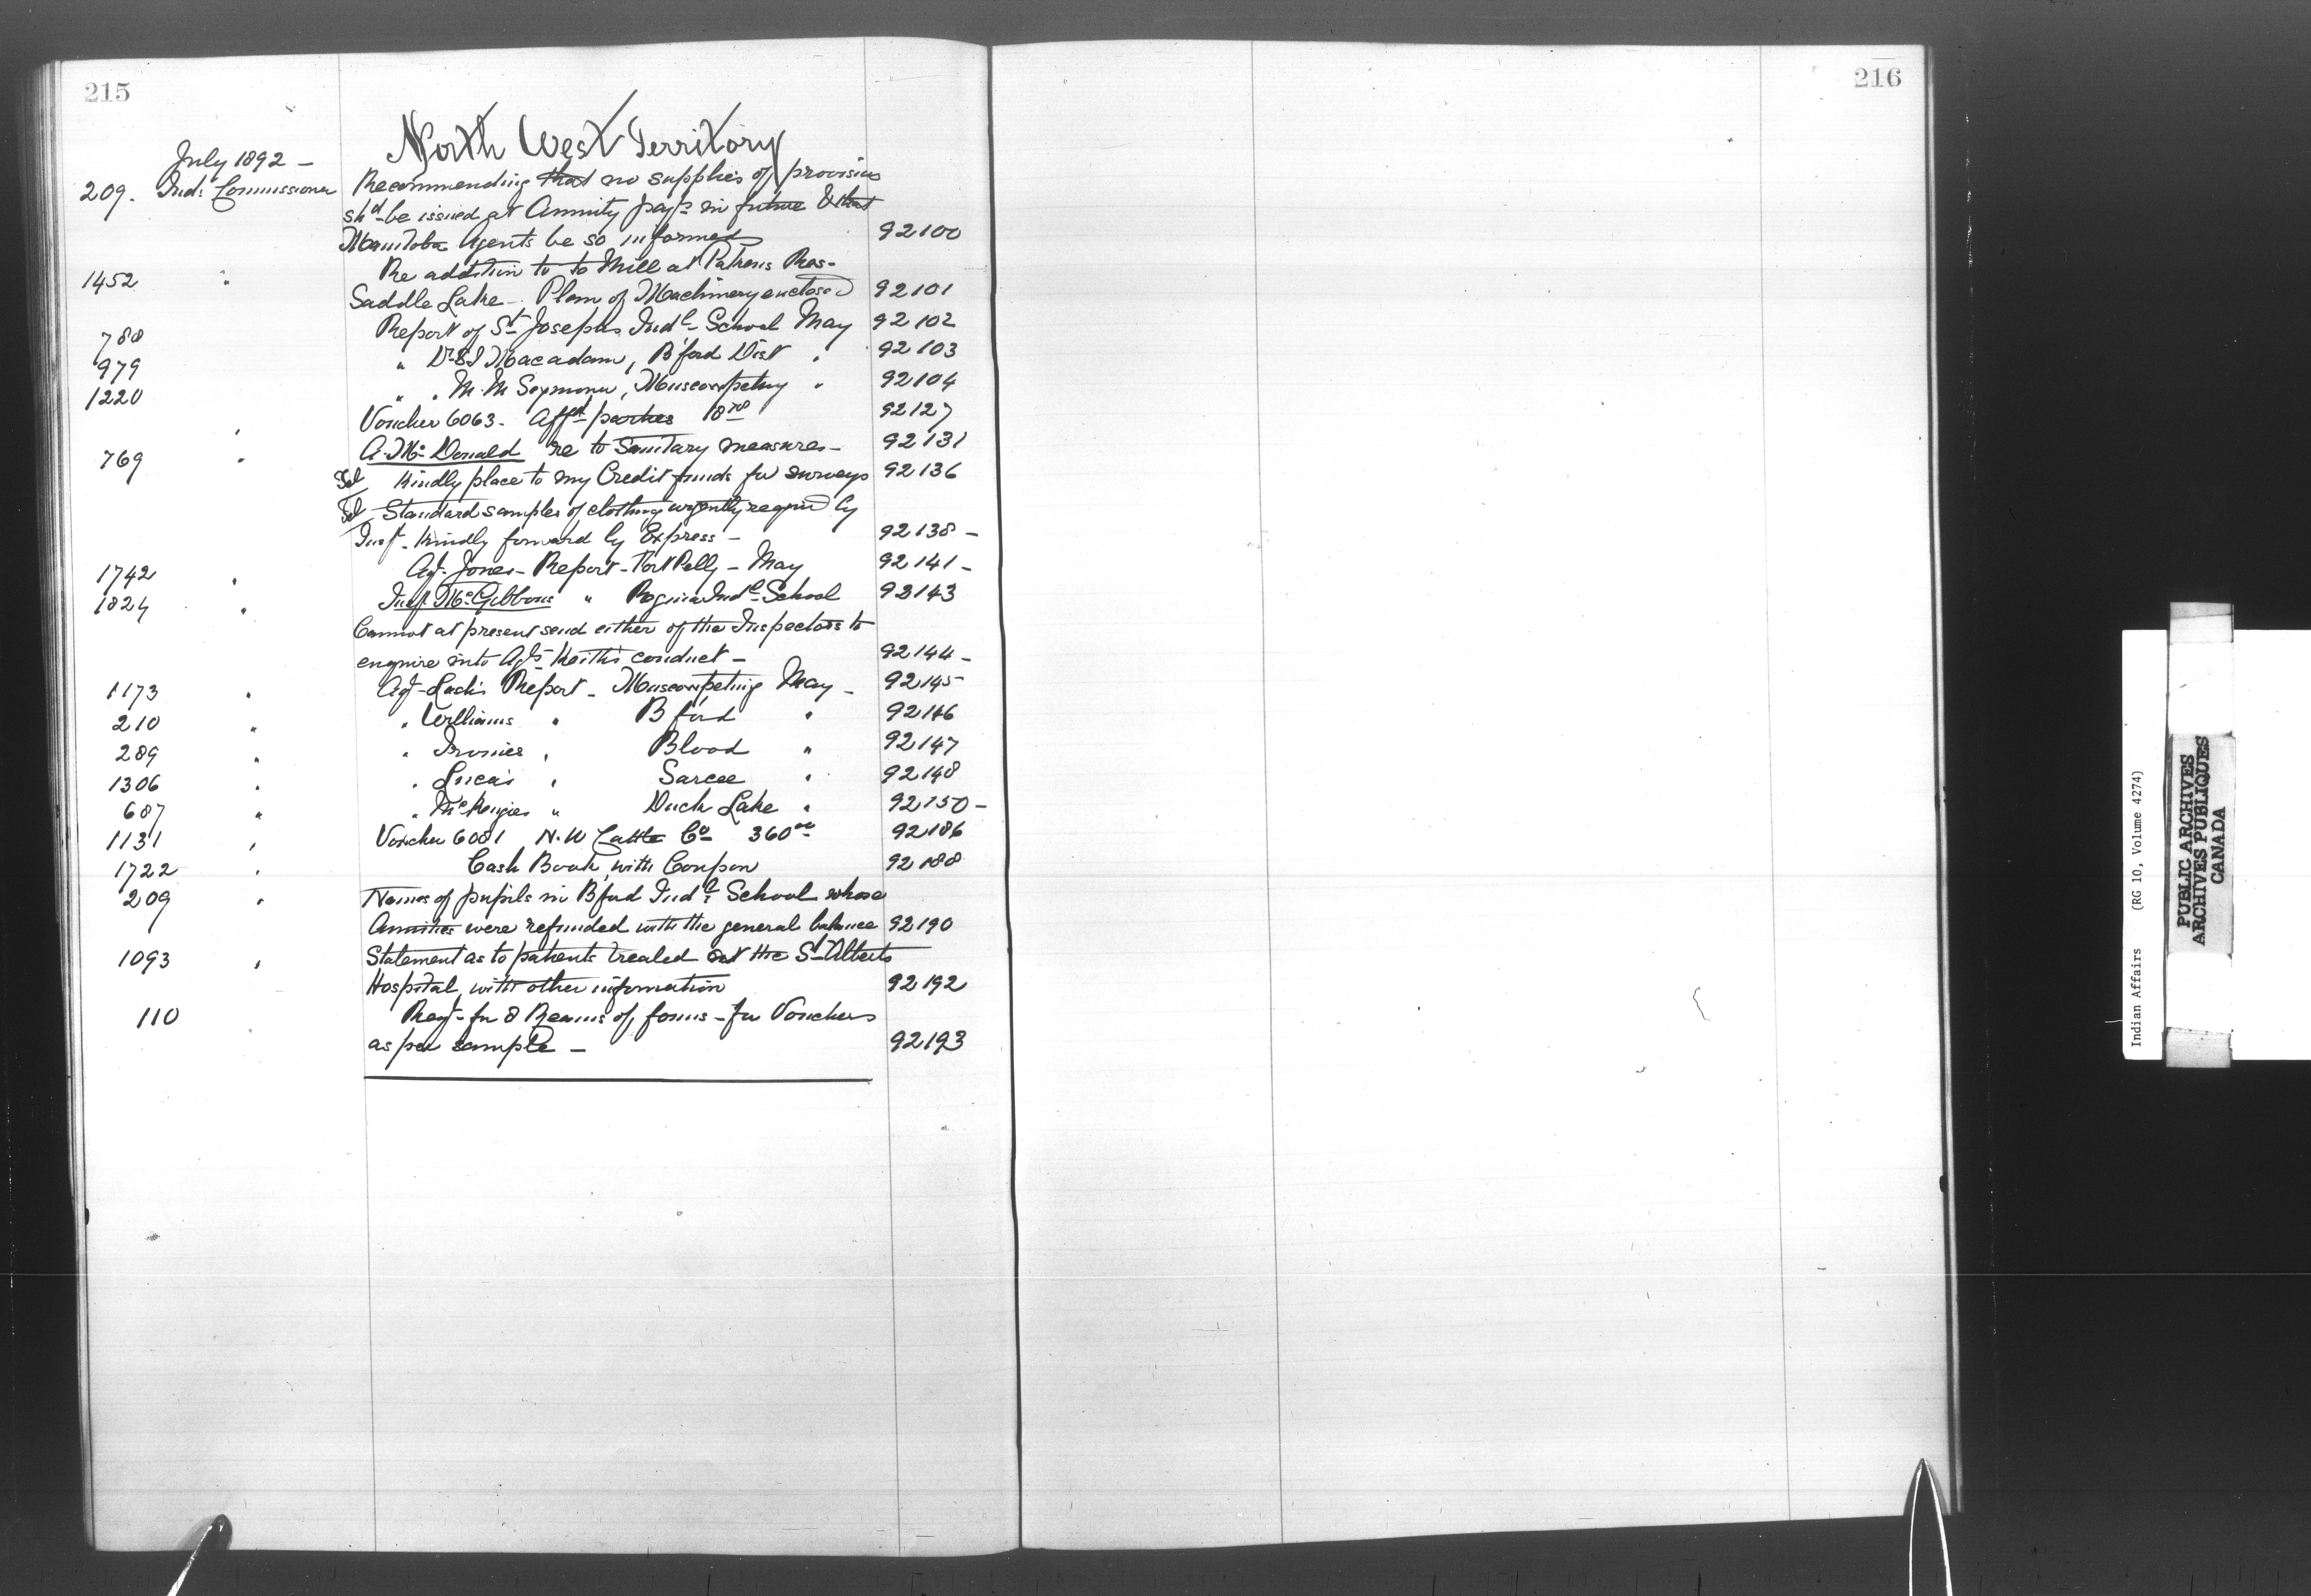 215
216
North West Territory
July 1892 –
209. Ind: Commissioner Recommending that no supplies of provisions
shd be issued at Annuity payts in future & that
Manitoba Agents be so informed 92100
1452 " Re addition to to Mill at Pakans Res –
Saddle Lake – Plan of Machinery enclosed 92101
788 Report of St Josephs Indl School May 92102
979 " Dr S.T Macadam, B'ford Dist " 92103
1220 " " M. M Seymour, Muscowpetung " 92104
" Voucher 6063 – 92127
769 " A. Mc Donald re to Sanitary measures – 92131
Tel Kindly place to my Credit funds for surveys 92136
Tel Standard samples of clothing urgently required by
Insp. Kindly forward by Express – 92138 –
1742 " Agt Jones – Report – Fort Pelly – May 92141 –
1824 " Insp. McGibbons " Regina Indl School 92143
Cannot at present send either of the Inspectors to
enquire into Agts Keith's conduct – 92144 –
1173 " Agt – Lash's Report – Muscowpetung May – 92145
210 " " Williams " B'ford " 92146
289 " " Irvines " Blood " 92147
1306 " " Lucas " Sarcee " 92148
687 " " McKenzies " Duck Lake " 92150 –
1131 " Voucher 6081 N. W Cattle Co 360 00 92186
1722 " Cash Book, with Coupon 92188
209 " Names of pupils in B'ford Indl School whose
Annuities were refunded with the general balance 92190
1093 " Statement as to patients treated at the St Alberts
Hospital, with other information 92192
110 Reqt – for 8 Reams of forms – for Vouchers
as per sample – 92193
Indian Affairs (RG 10, Volume 4274)
PUBLIC ARCHIVES
ARCHIVES PUBLIQUES
CANADA